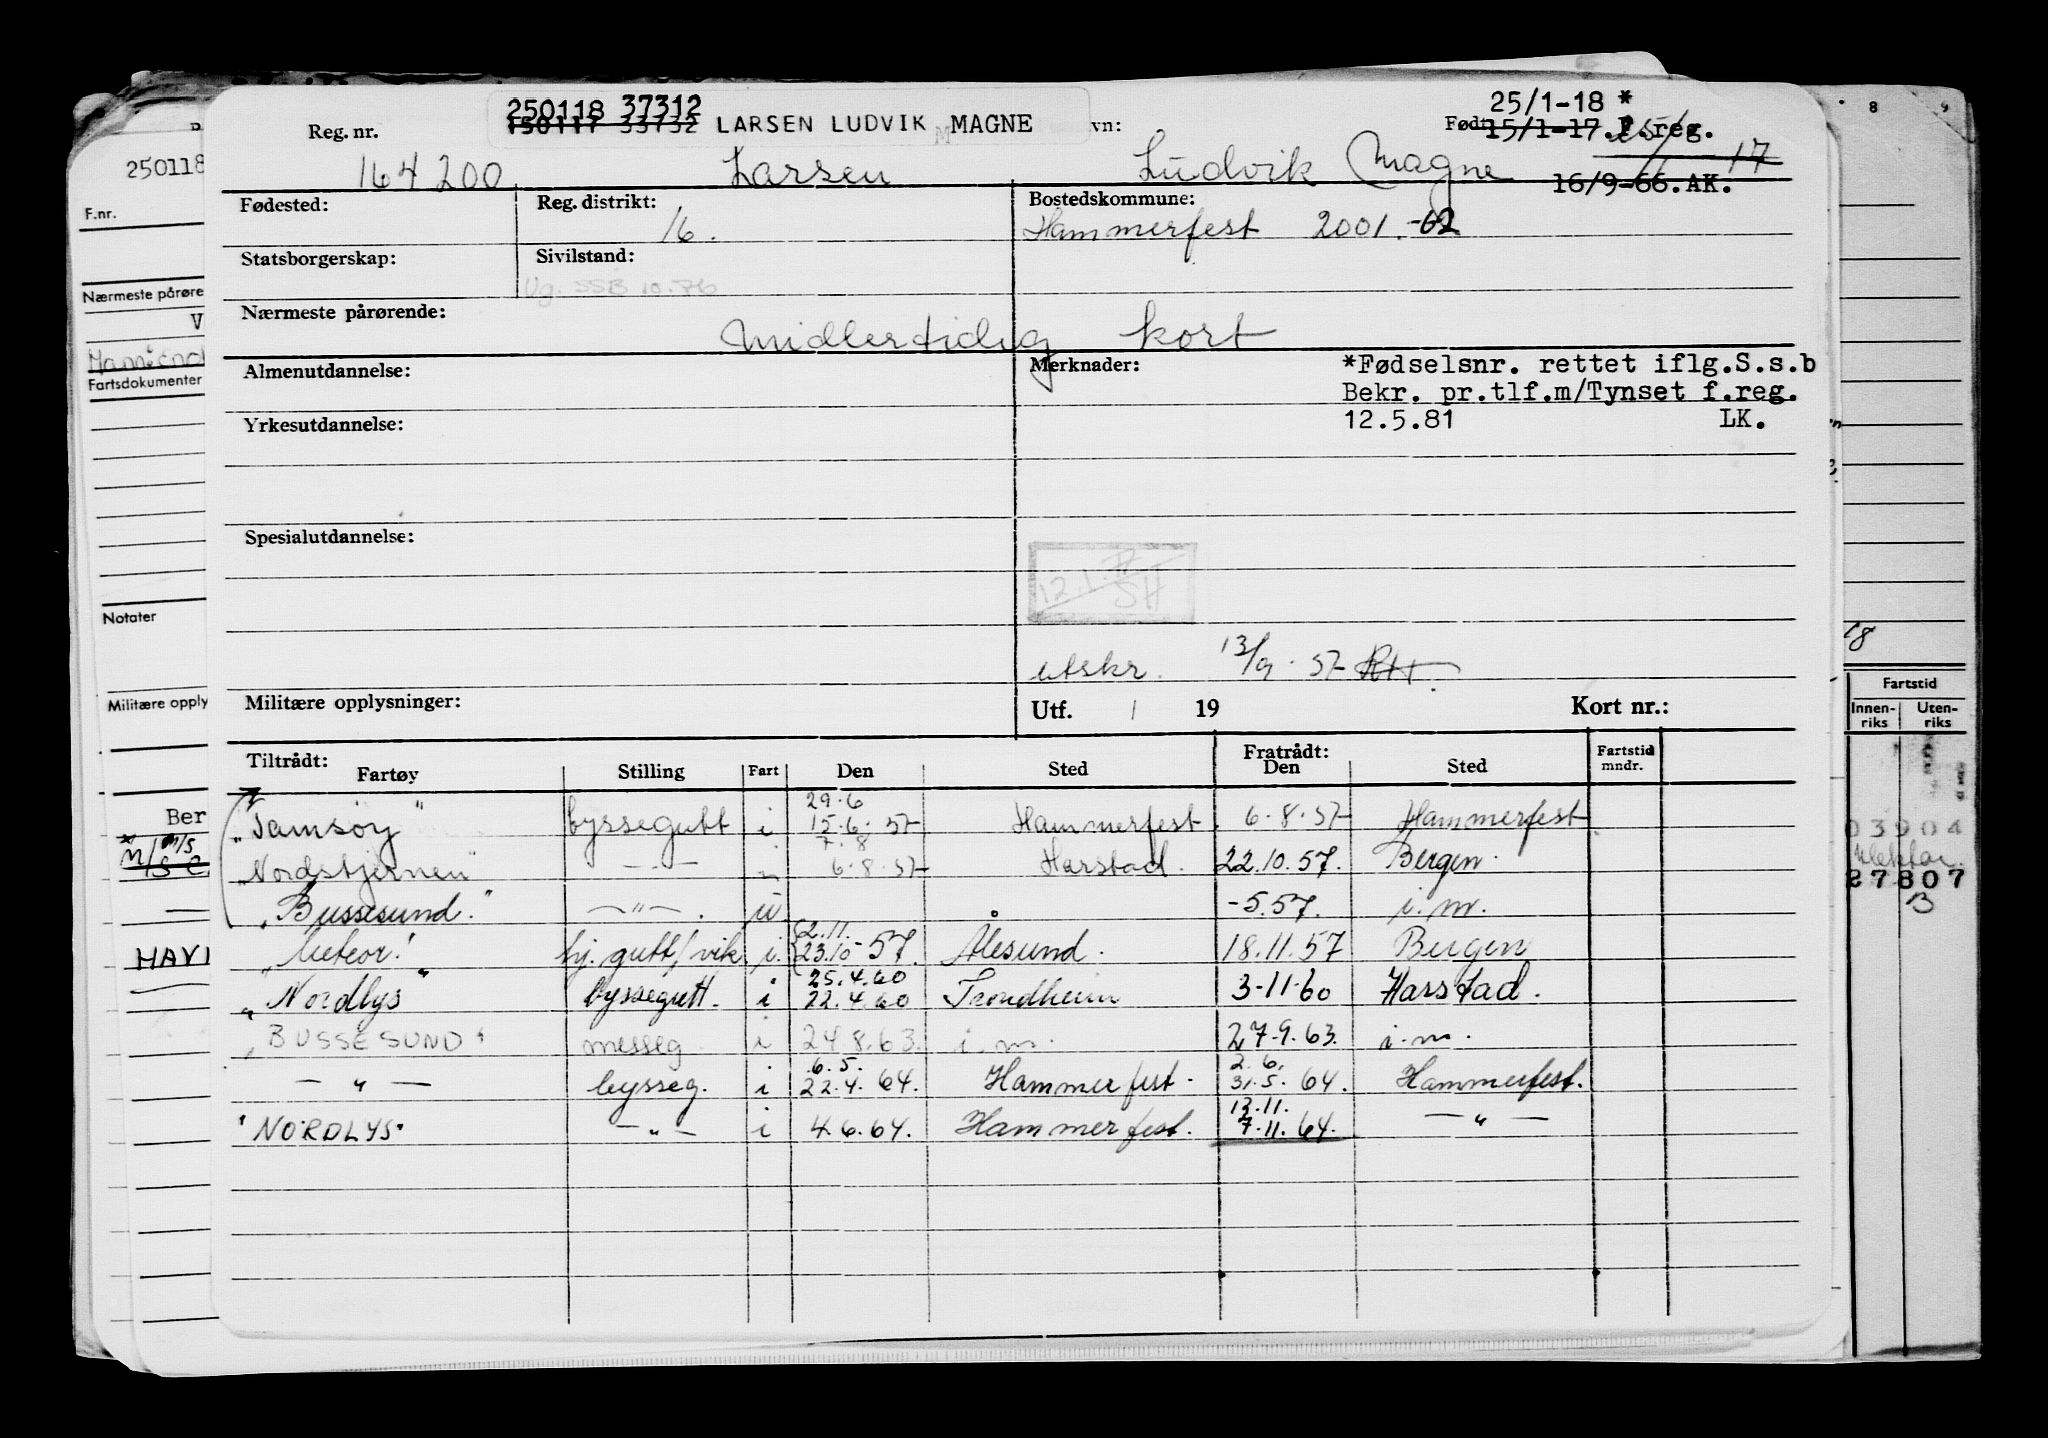 250118 37312
150117 33732 LARSEN LUDVIK M MAGNE vn:
25/1-18 *
Reg. nr. Født 15/1-17. F.reg.
164200 Larsen Ludvik Magne 17
16/9-66.AK.
Fødested: Reg. distrikt: 16. Bostedskommune:
Hammerfest 2001.-62
Statsborgerskap: Sivilstand:
Ug. SSB 10.76
Nærmeste pårørende:
Midlertidig kort
Almenutdannelse: Merknader: *Fødselsnr. rettet iflg.S.s.b
Bekr. pr.tlf.m/Tynset f.reg.
Yrkesutdannelse: 12.5.81 LK.
Spesialutdannelse:
12.1. SH
utskr. 13/9.57 RH
Militære opplysninger: Utf. / 19 Kort nr.:
Tiltrådt: Fratrådt:
Fartøy Stilling Fart Den Sted Den Sted Fartstid mndr.
29.6
"Tamsøy" byssegutt i 15.6.57 Hammerfest 6.8.57 Hammerfest
7.8
"Nordstjernen" —"— 6.8.57 Harstad. 22.10.57. Bergen.
"Bussesund." —"—. -5.57. i.m.
2.11.
"Meteor" by. gutt/vik. i. 23.10-57. Ålesund. 18.11.57 Bergen
25.4.60
"Nordlys" byssegutt. i 22.4.60 Trondheim 3-11-60 Harstad.
"BUSSESUND" messeg. i 24.8.63. i.m. 27.9.63. i.m.
6.5. 2.6.
—"— bysseg. i 22.4.64. Hammerfest. 31.5.64. Hammerfest.
12.11.
"NORDLYS" —"— i 4.6.64. Hammerfest. 7.11.64. —"—
250118
F.nr.
Nærmeste pårøre
V
Fartsdokumenter
Notater
Militære opply
Ber
M/S
HAVI
8 9
18
Fartstid
Innen-riks Uten-riks
03904
27807